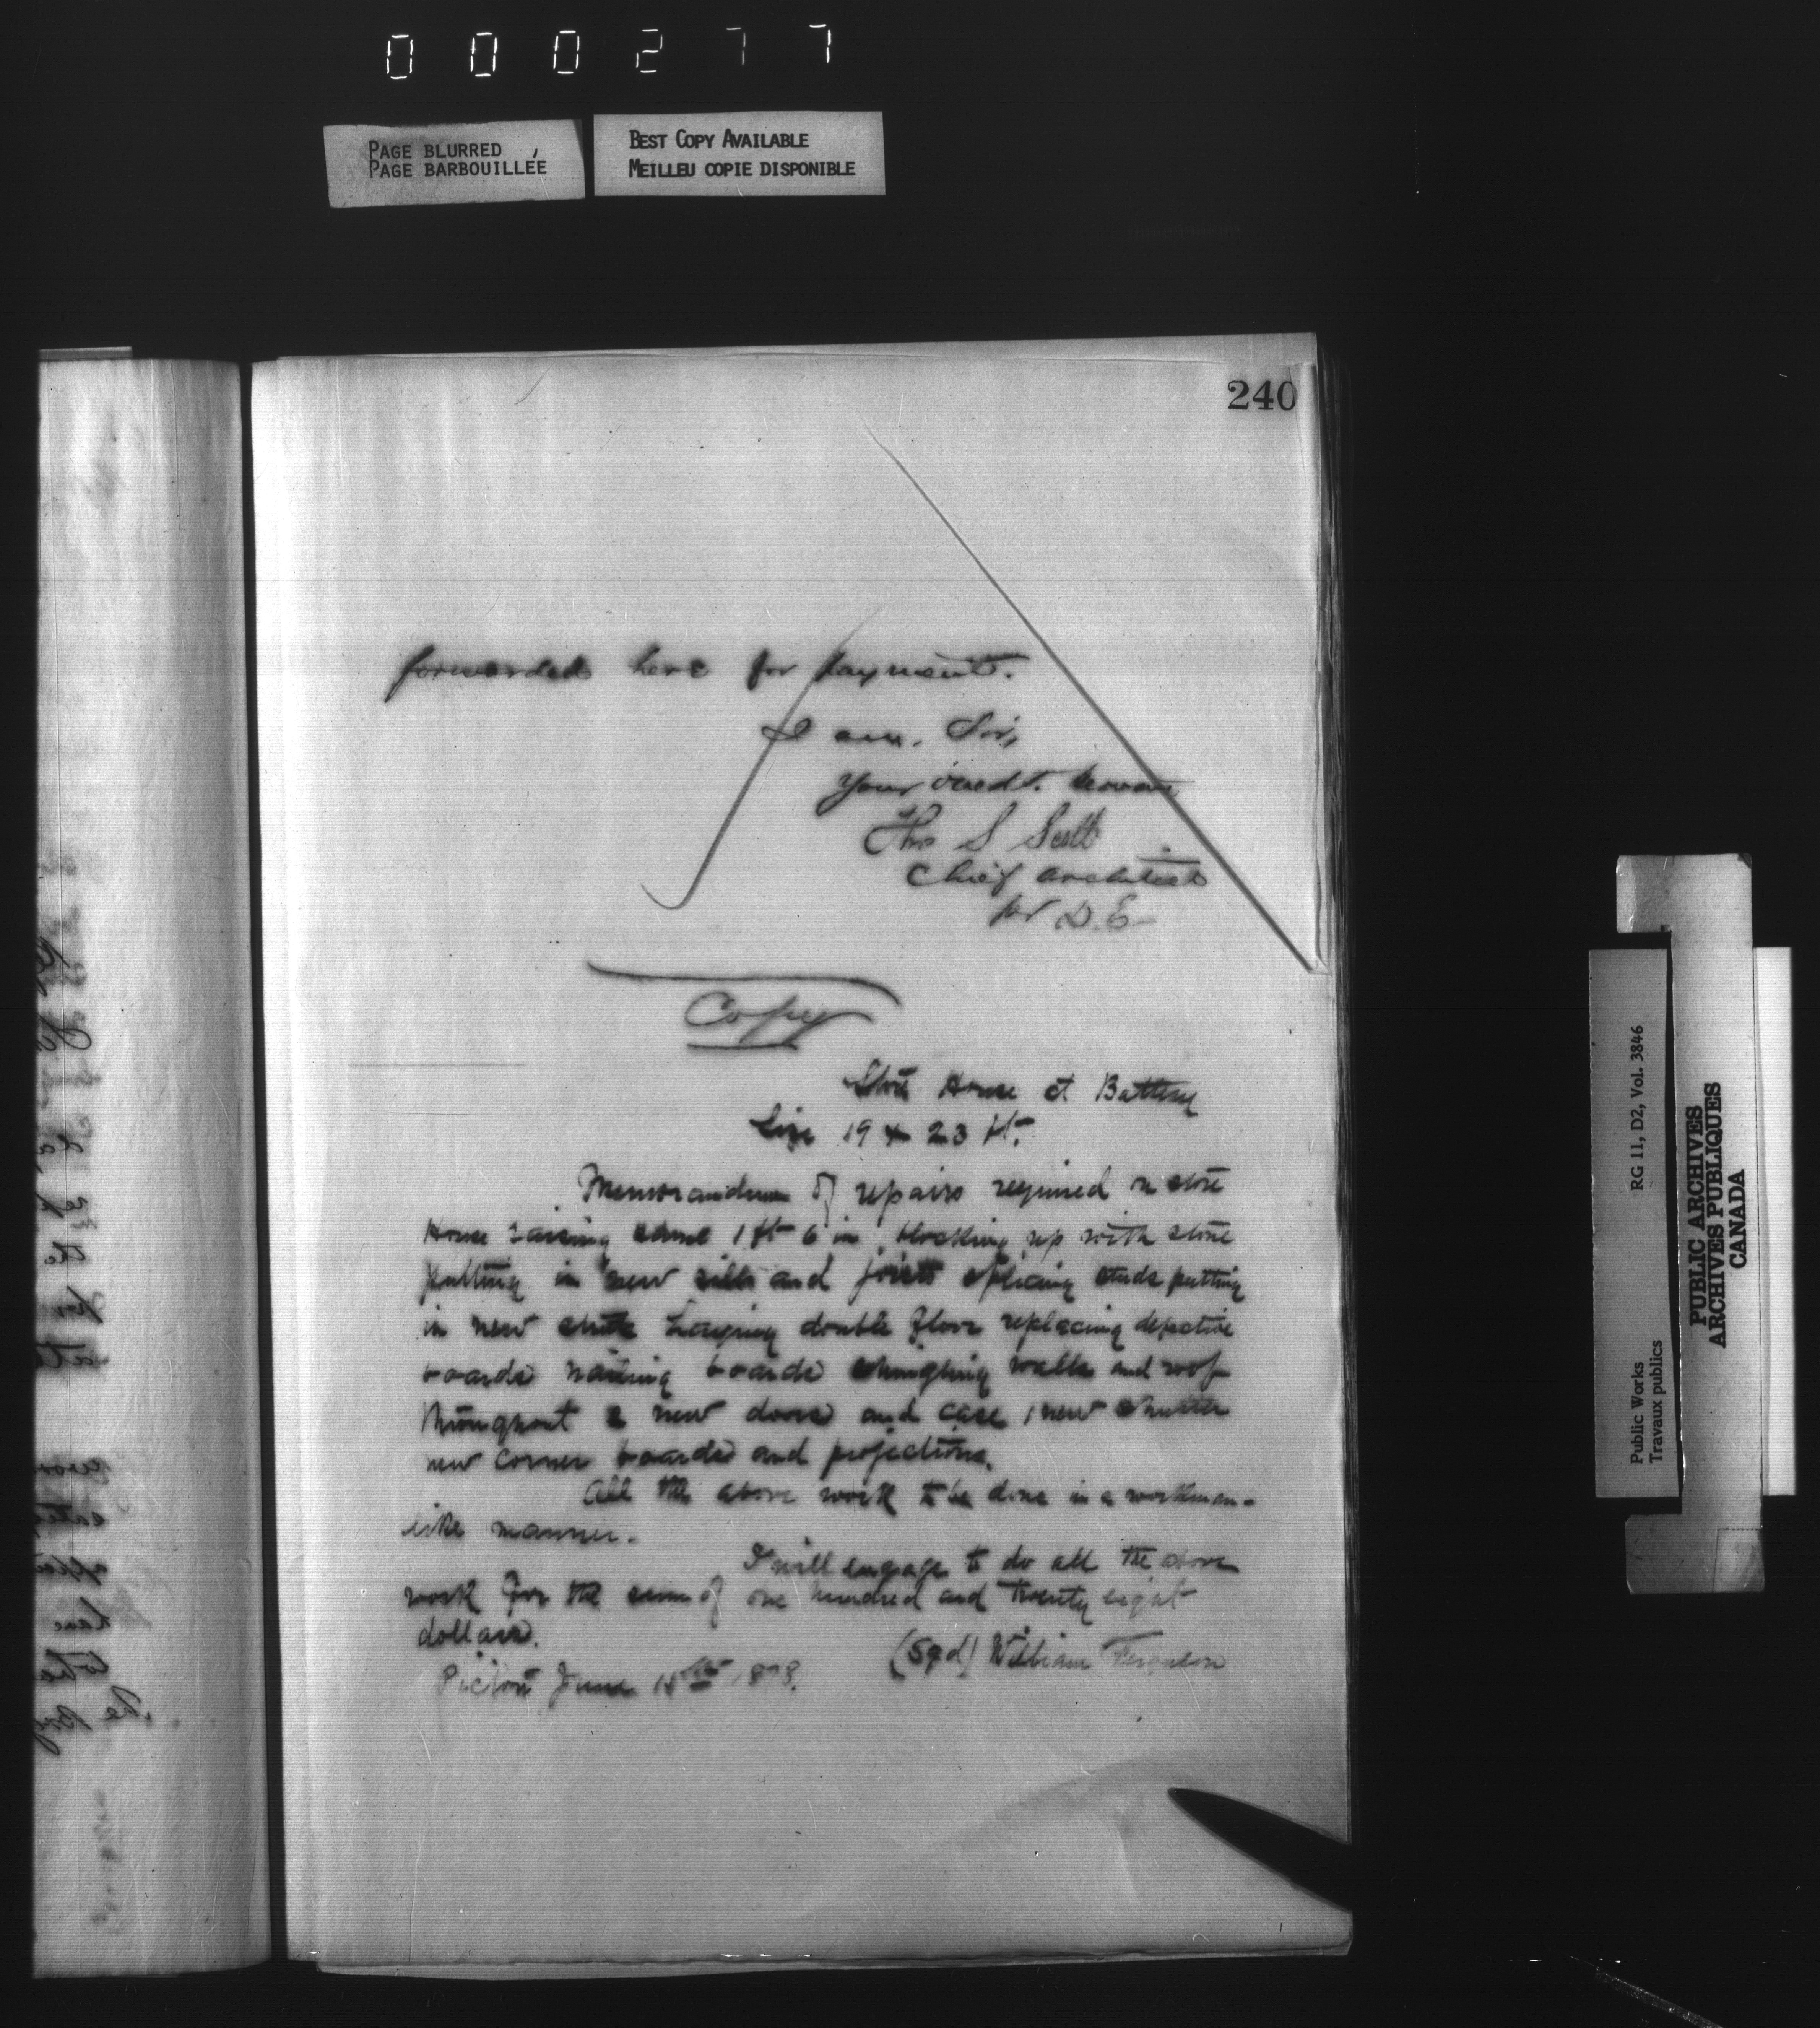 000277
PAGE BLURRED
PAGE BARBOUILLÉE
BEST COPY AVAILABLE
MEILLEU COPIE DISPONIBLE
240
forwarded here for payment.
I am, Sir,
Your obedt. Servant
Thos S Scott
Chief Architect
per D.E.
Copy
Store House at Battery
Size 19 x 23 ft.
Memorandum of repairs required on store
House raising same 1 ft 6 in, blocking up with stone
putting in new sills and joists splicing studs putting
in new Laying double floor replacing defective
boards nailing boards shingling walls and roof
throughout 2 new doors and case 1 new shutter
new corner boards and projections.
All the above work to be done in a workman-
like manner.
I will engage to do all the above
work for the sum of one hundred and twenty eight
dollars.
(Sgd) William Ferguson
Pictou June
RG 11, D2, Vol. 3846
Public Works
Travaux publics
PUBLIC ARCHIVES
ARCHIVES PUBLIQUES
CANADA